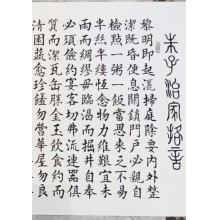 朱子治家格言
黎明即起灑掃庭除要內外整
潔既昏便息關鎖門戶必親自
檢點一粥一飯當思來之不易
半絲半縷恆念物力維艱宜未
雨而綢繆毋臨渴而掘井自奉
必須儉約宴客切勿流連器具
質而潔瓦缶勝金玉飲食約而
清園蔬愈珍饈勿營華屋勿良